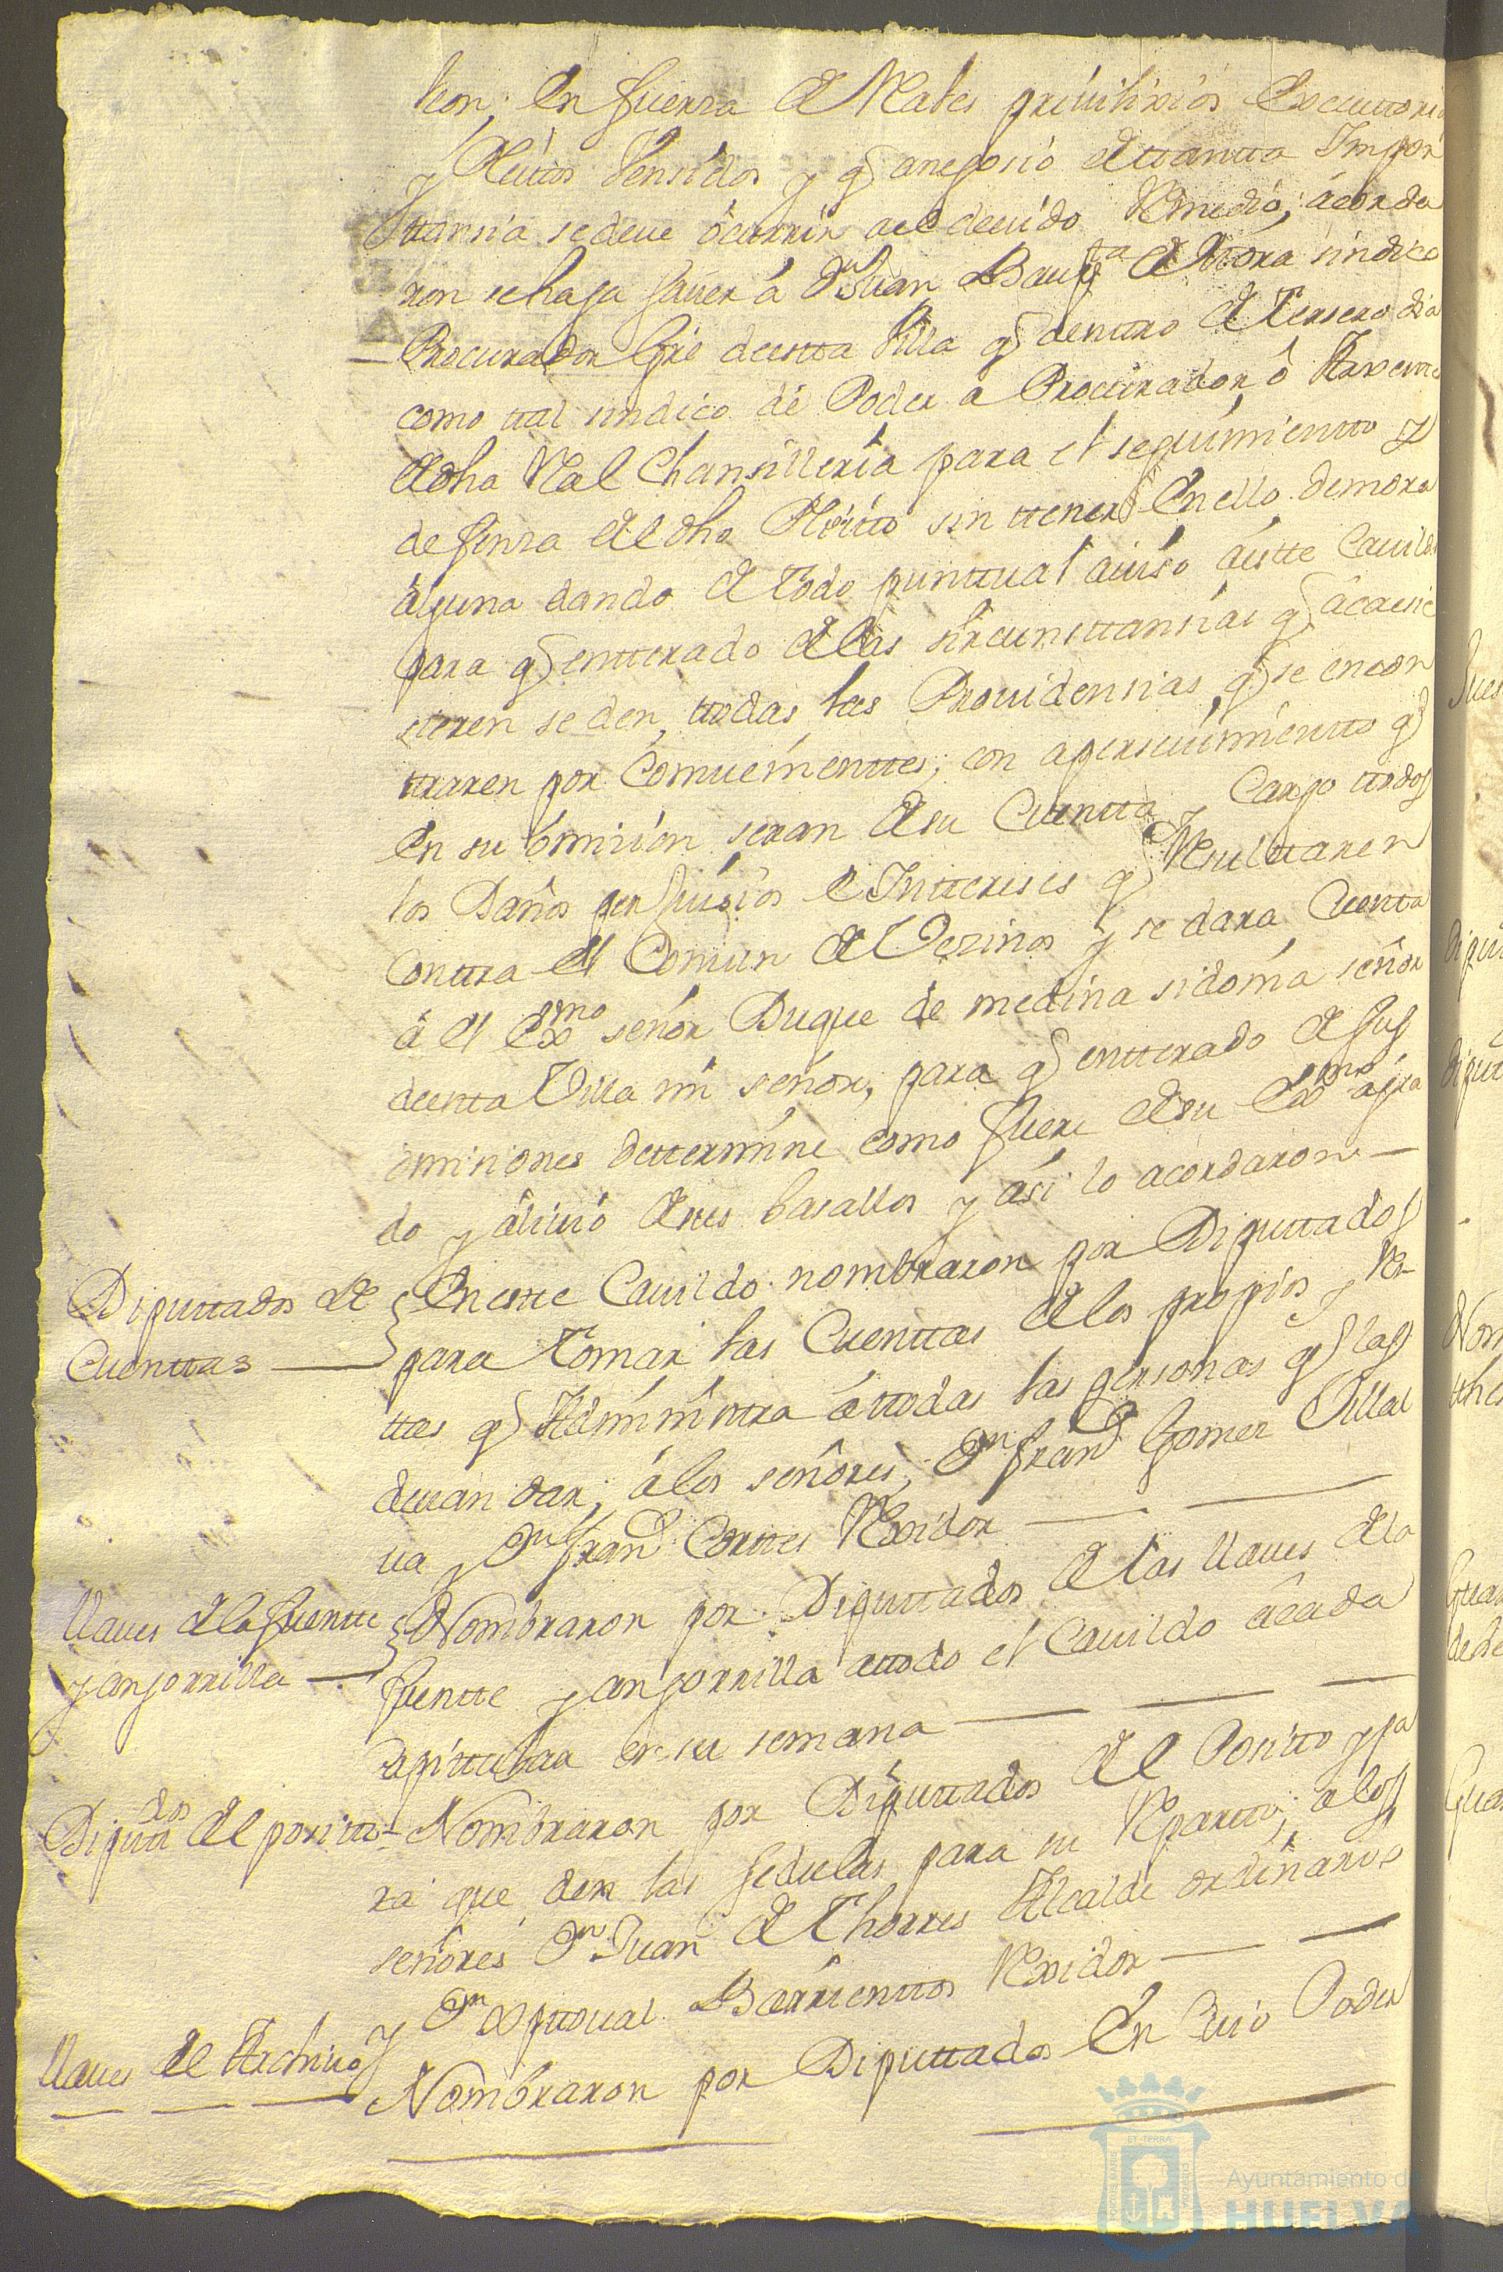 teon; en fuerza de Rales privilixios Executoria
y Pleittos Vensidos y q anegosio de ttantta Impor
ttansia se deve ócurrir ael devido Remedió; acorda
ron se haga saver á Dn Juan Baupta de Mora síndico
Procurador Gral de esta Villa q denttro de Tersero dia
como ttal sindico dé Poder a Procurador ô
de dha Ral Chansillería para el seguimientto y
defensa del dho Pleitto sin ttener en ello demora
alguna dando de todo punttual aviso áestte Cavildo
para q entterado de las sircunsttansias q acaesie
sieren se den, ttodas las Providensias, q se encon
ttraren por Comvenienttes, con apersevimientto q
en su ómisión seran de su Cuentta y Cargo ttodos
los Daños perjuisios e Intereses q Resulttaren
Conttra el Comun de Vezinos y se dara Cuenta
á el Exmo señor Duque de medina sidonia señor
de esta Villa mi señor, para q entterado de sus
omisiones determine como fuere de su Exma agra
do y alivió de sus basallos y ási lo acordaron —
Diputtados de
Cuenttas —
En estte Cavildo nombraron por Diputtados
para Tomar las Cuenttas de los propios y Ren
ttas q Administra á ttodas las personas q las
devan dar, á los señores, Dn Franco Gomez Villal
va y Dn Franco Corttes Rexidor —
llaves de la fuentte
y anjorrilla —
Nombraron por Diputtados de las llaves de la
fuentte y anjorrilla attodo el Cavildo acada
apittular en su semana —
Diputtdos del positto
Nombraron por Diputtados del Positto y pa
ra que den las sedulas para su Repartto, a los
señores Dn Juan de Thorres Alcalde ordinario
y Dn Xpttoval Barrienttos Rexidor —
llaves del Archivo
Nombraron por Diputtados En Cuio Poder
Ayuntamiento de
HUELVA